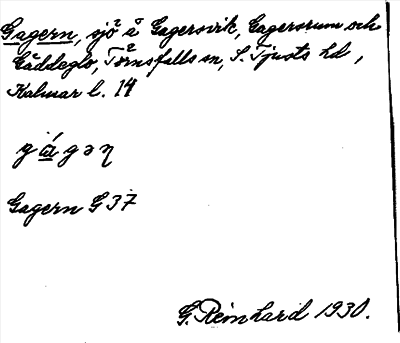 Gagern, sjö å Gagersvik, Gagersrum och
Gäddeglo, Törnsfalls sn, S. Tjusts hd,
Kalmar l. 14
gágən
Gagern G 37
G. Reinhard 1930.